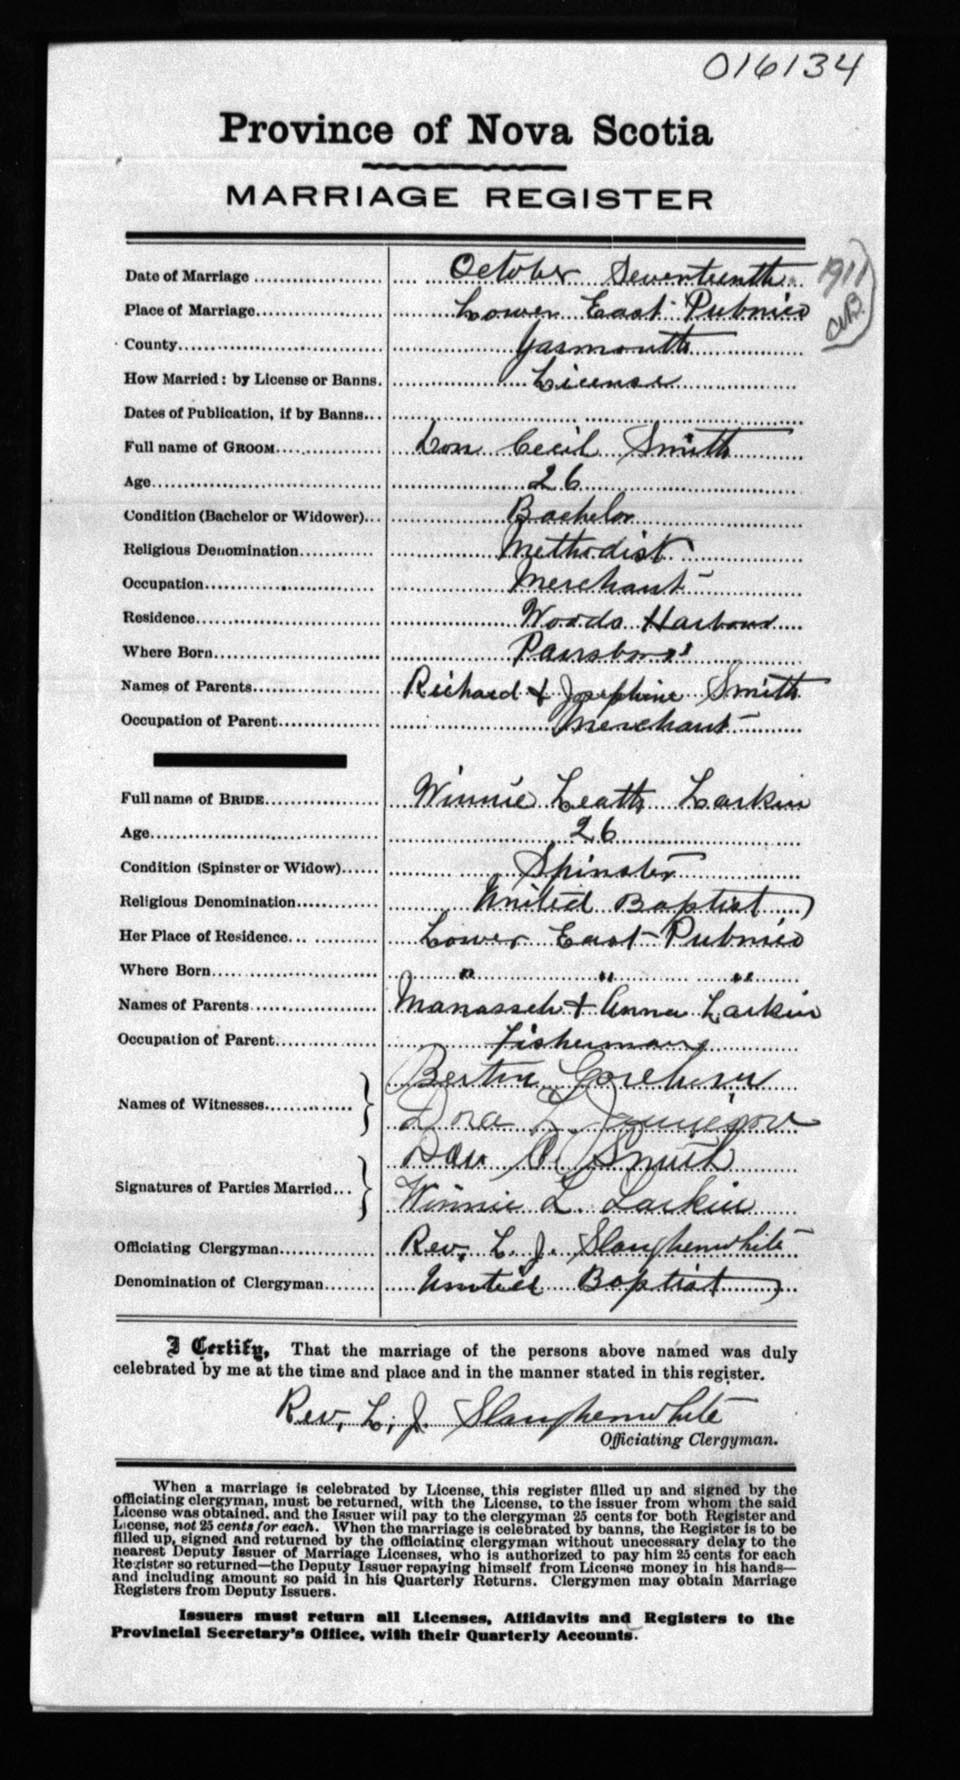 016134
Province of Nova Scotia
MARRIAGE REGISTER
Date of Marriage October Seventeenth 1911
Place of Marriage Lower East Pubnico
County Yarmouth
How Married: by License or Banns. License
Dates of Publication, if by Banns
Full name of GROOM Lon Cecil Smith
Age 26
Condition (Bachelor or Widower) Bachelor
Religious Denomination Methodist
Occupation Merchant
Residence Woods Harbour
Where Born
Names of Parents Richard & Josephine Smith
Occupation of Parent Merchant
Full name of BRIDE Winnie Leatta Larkin
Age 26
Condition (Spinster or Widow) Spinster
Religious Denomination United Baptist
Her Place of Residence Lower East Pubnico
Where Born " " "
Names of Parents Manasseh & Anna Larkin
Occupation of Parent Fisherman
Names of Witnesses
Dora L.
Signatures of Parties Married Smith
Winnie L. Larkin
Officiating Clergyman Rev. L. J. Slaughenwhite
Denomination of Clergyman United Baptist
I Certify, That the marriage of the persons above named was duly
celebrated by me at the time and place and in the manner stated in this register.
Rev. L. J. Slaughenwhite
Officiating Clergyman.
When a marriage is celebrated by License, this register filled up and signed by the
officiating clergyman, must be returned, with the License, to the issuer from whom the said
License was obtained, and the Issuer will pay to the clergyman 25 cents for both Register and
License, not 25 cents for each. When the marriage is celebrated by banns, the Register is to be
filled up, signed and returned by the officiating clergyman without unnecessary delay to the
nearest Deputy Issuer of Marriage Licenses, who is authorized to pay him 25 cents for each
Register so returned—the Deputy Issuer repaying himself from License money in his hands—
and including amount so paid in his Quarterly Returns. Clergymen may obtain Marriage
Registers from Deputy Issuers.
Issuers must return all Licenses, Affidavits and Registers to the
Provincial Secretary's Office, with their Quarterly Accounts.